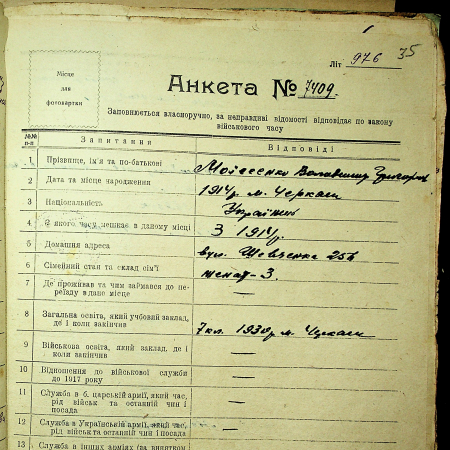 35
Літ 976
Місце
для
фотокартки
Анкета № 7409.
Заповнюється власноручно, за неправдиві відомості відповідає по закону
військового часу
№№ п-п Запитання Відповіді
1 Прізвище, ім'я та по-батькові Мойсеєнко Володимир Григоров
2 Дата та місце народження 1914р. м. Черкаси
3 Національність Українец
4 З якого часу мешкає в даному місці З 1914р.
5 Домашня адреса вул. Шевченка 256
6 Сімейний стан та склад сім'ї женат-3.
7 Де проживав та чим займався до пе-
реїзду в дане місце —
8 Загальна освіта, який учбовий заклад,
де і коли закінчив 7кл. 1930р м. Черкаси
9 Військова освіта, який заклад, де і
коли закінчив —
10 Відношення до військової служби
до 1917 року —
11 Служба в б. царській армії, який час,
рід військ та останній чин і
посада —
12 Служба в Українській армії, який час,
рід військ та останній чин і посада —
13 Служба в інших арміях (за винятком